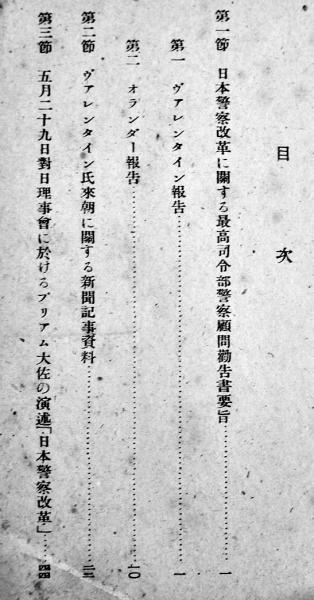 目次
第一節 日本警察改革に關する最高司令部警察顧問勸告書要旨……………一
第一 ヴアレンタイン報告……………一
第二 オランダー報告……………一〇
第二節 ヴアレンタイン氏來朝に關する新聞記事資料……………二三
第三節 五月二十九日對日理事會に於けるプリアム大佐の演述「日本警察改革」……四四